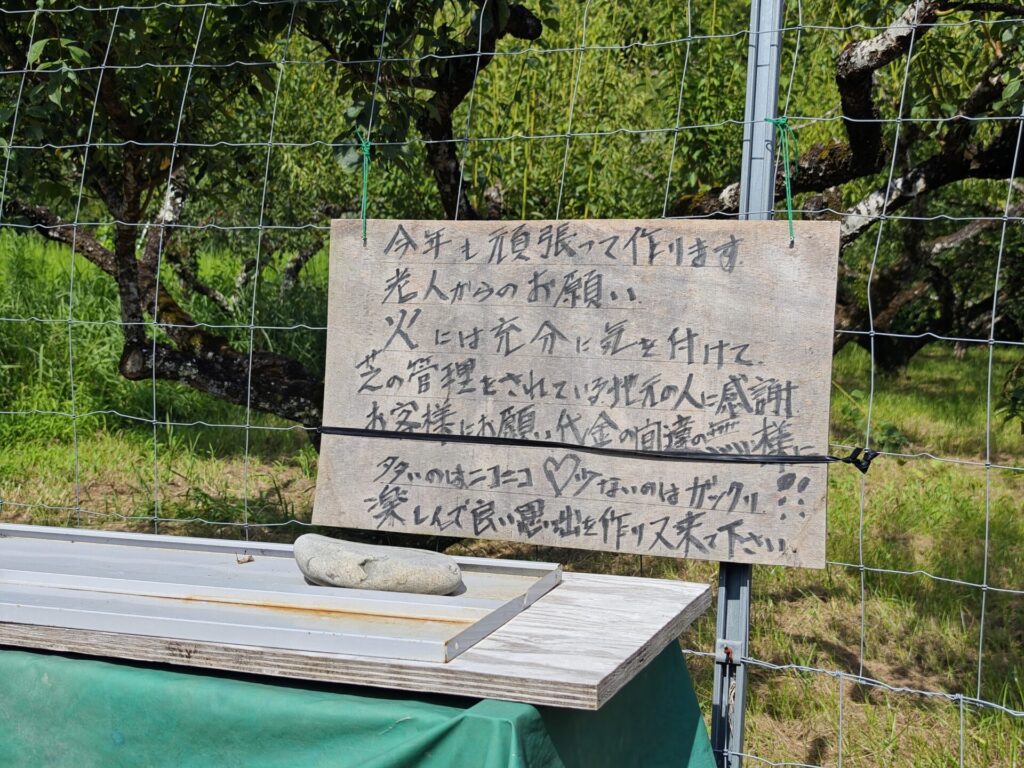 今年も頑張って作ります
老人からのお願い
火には充分に気を付けて
芝の管理をされている地元の人に感謝
お客様にお願い代金の間違の無い様に
多いのはニコニコ♡少ないのはガックリ!!
楽しんで良い思い出を作りに来て下さい